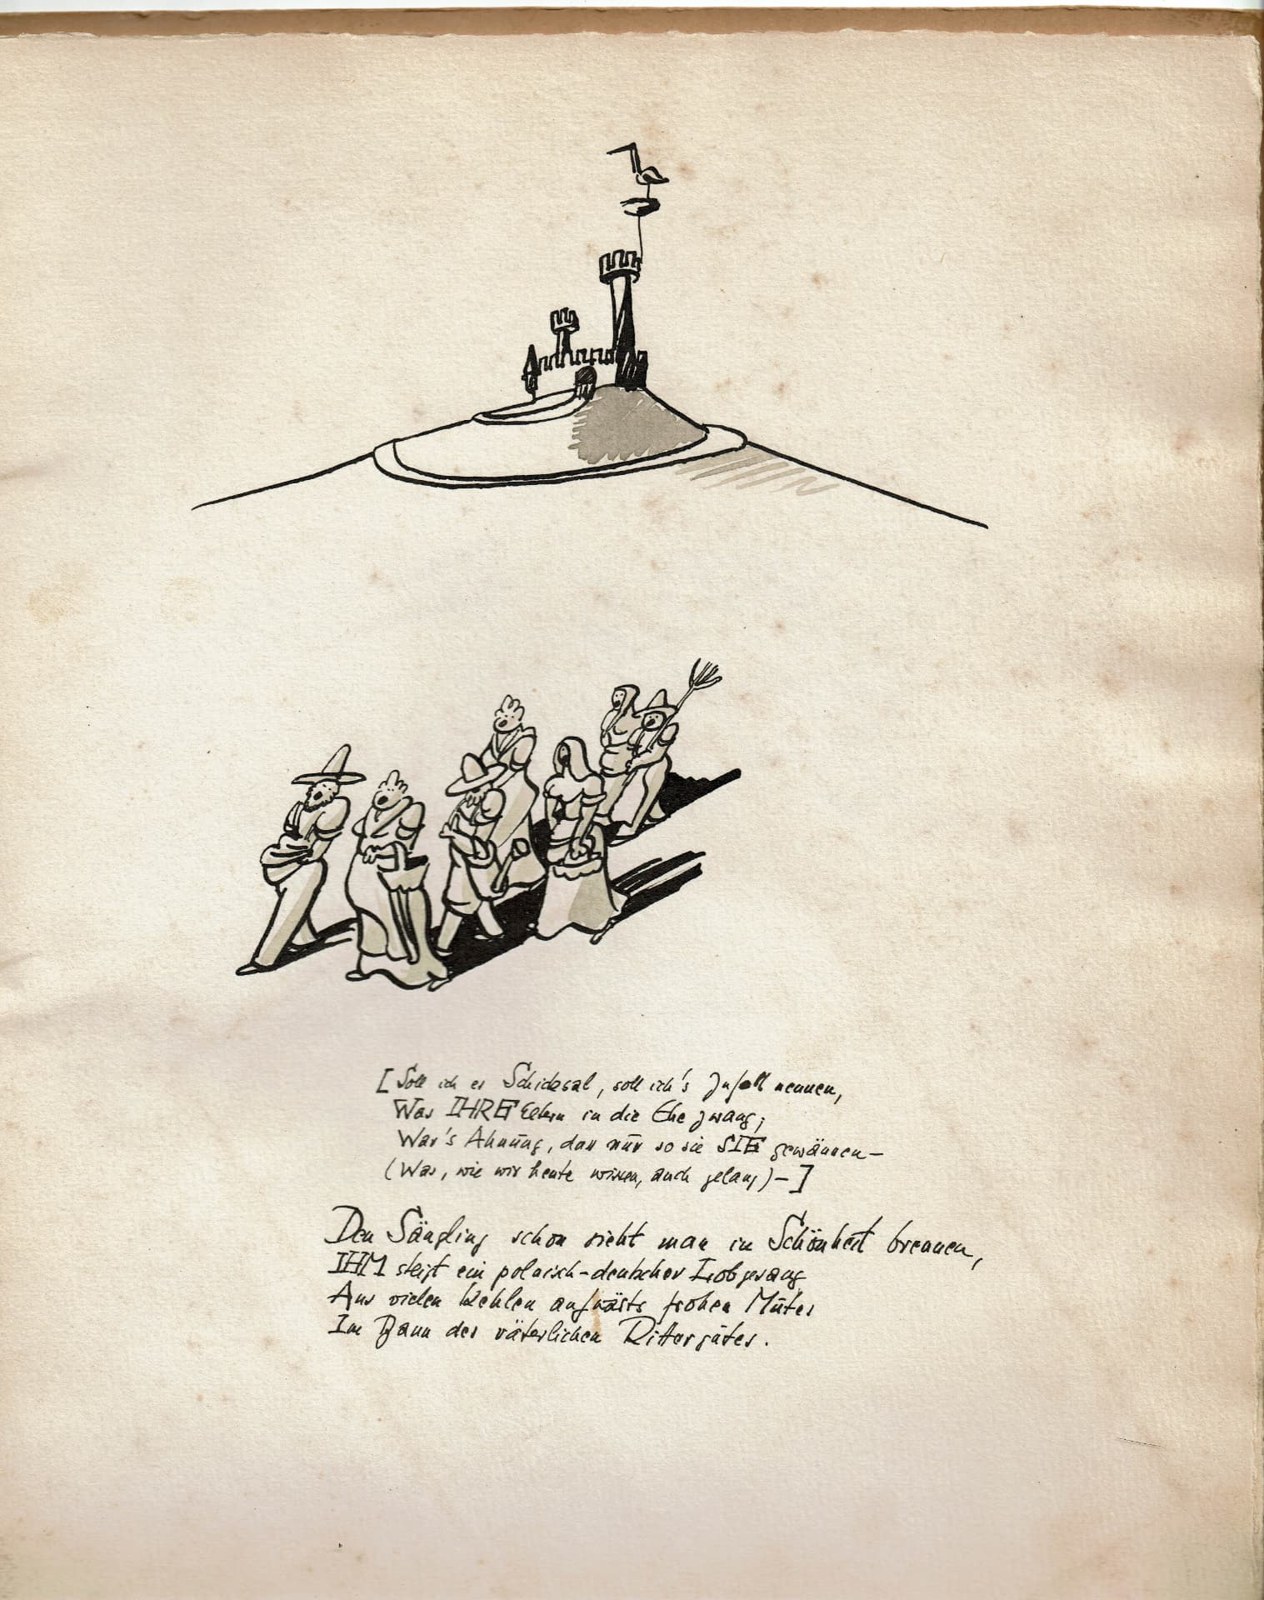 [Soll ich es Schicksal, soll ich's Zufall nennen,
Was IHRE Eltern in die Ehe zwang;
War's Ahnung, dass nur so sie SIE gewännen—
(Was, wie wir heute wissen, auch gelang)—]
Den Säugling schon sieht man in Schönheit brennen,
IHM steigt ein polnisch-deutscher Lobgesang
Aus vielen Kehlen aufwärts frohen Mutes
Im Bann des väterlichen Rittergutes.